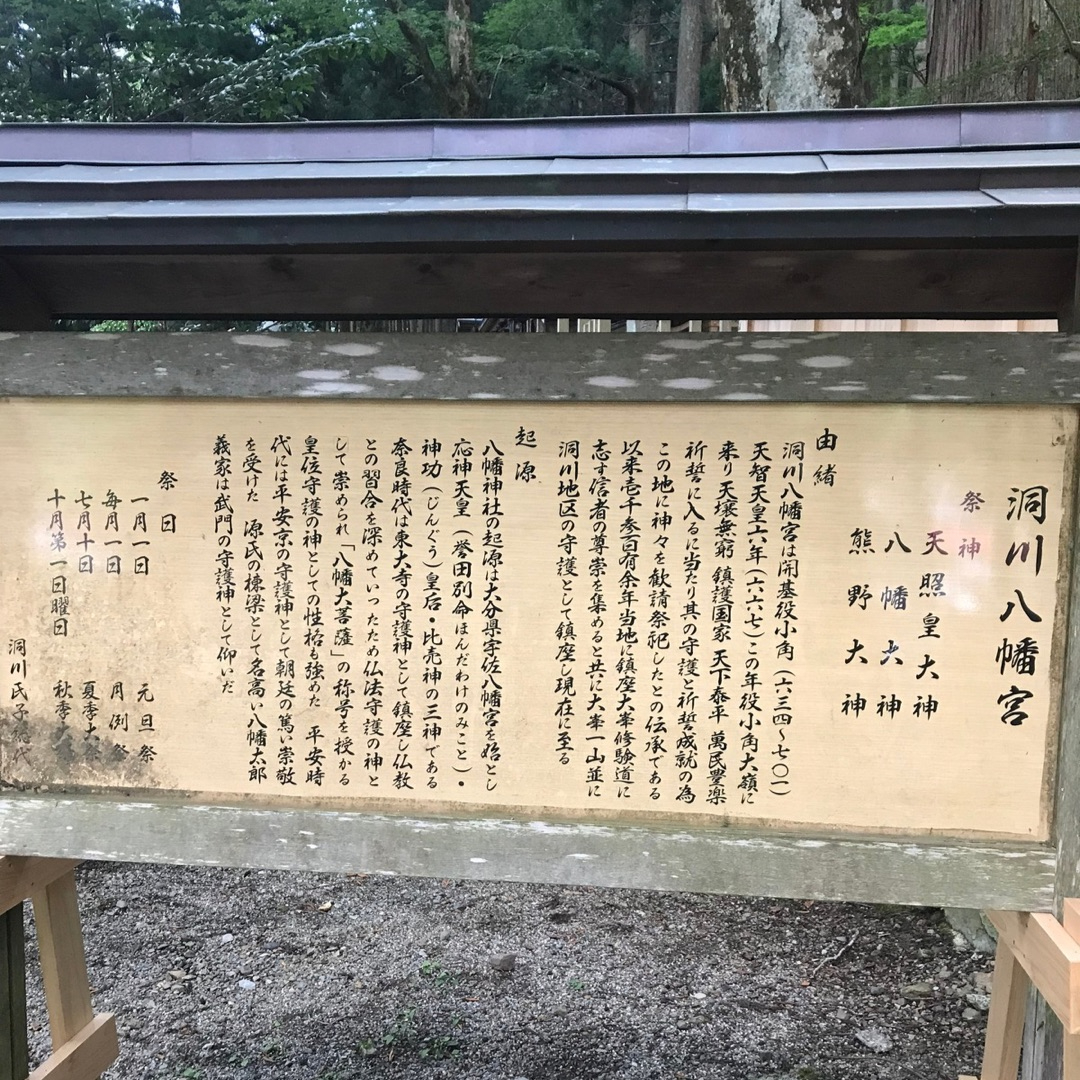 洞川八幡宮
祭神
天照皇大神
八幡大神
熊野大神
由緒
洞川八幡宮は開基役小角（六三四～七〇一）
天智天皇六年（六六七）この年役小角大嶺に
来り天壌無窮 鎮護国家 天下泰平 萬民豊楽
祈誓に入るに当たり其の守護と祈誓成就の為
この地に神々を歓請祭祀したとの伝承である
以来壱千参百有余年当地に鎮座大峯修験道に
志す信者の尊崇を集めると共に大峯一山並に
洞川地区の守護として鎮座し現在に至る
起源
八幡神社の起源は大分県宇佐八幡宮を始とし
応神天皇（誉田別命ほんだわけのみこと）・
神功（じんぐう）皇后・比売神の三神である
奈良時代は東大寺の守護神として鎮座し仏教
との習合を深めていったため仏法守護の神と
して崇められ「八幡大菩薩」の称号を授かる
皇位守護の神としての性格も強めた 平安時
代には平安京の守護神として朝廷の篤い崇敬
を受けた 源氏の棟梁として名高い八幡太郎
義家は武門の守護神として仰いだ
祭日
一月一日 元旦祭
毎月一日 月例祭
七月十日 夏季大
十月第一日曜日 秋季大
洞川氏子総代